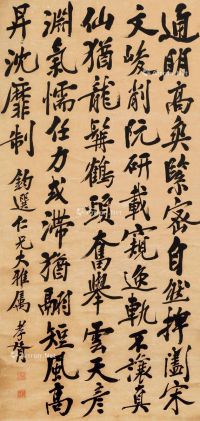 通明高爽緊密自然捭闔宋
文峻削阮研載窺逸軌不讓真
仙猶龍髯鶴頸奮舉雲天彥
淵氣懦任力或滯猶翮短風高
昇沈靡制
鈞選仁兄大雅屬 孝胥